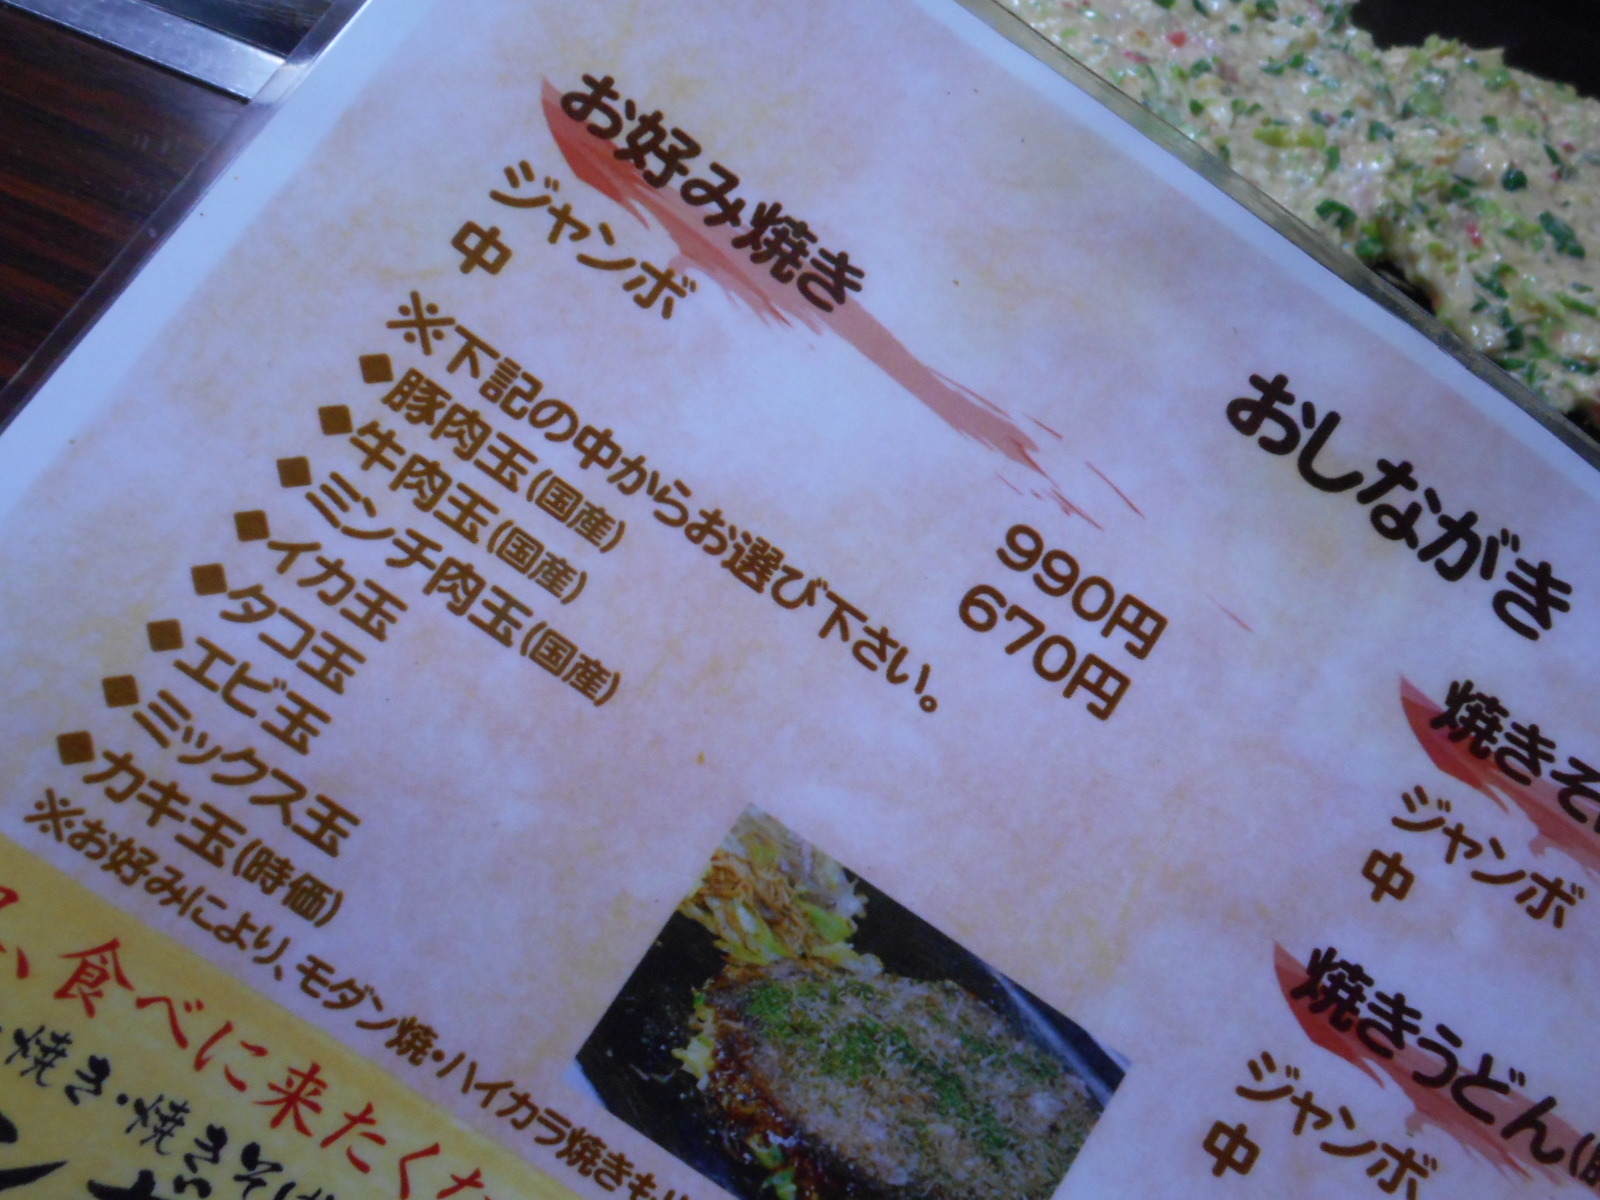 おしながき
お好み焼き
ジャンボ 990円
中 670円
※下記の中からお選び下さい。
◆豚肉玉(国産)
◆牛肉玉(国産)
◆ミンチ肉玉(国産)
◆イカ玉
◆タコ玉
◆エビ玉
◆ミックス玉
◆カキ玉(時価)
※お好みにより、モダン焼・ハイカラ焼きも
焼きそ
ジャンボ
中
焼きうどん
ジャンボ
中
食べに来たくな
焼き・焼きそば